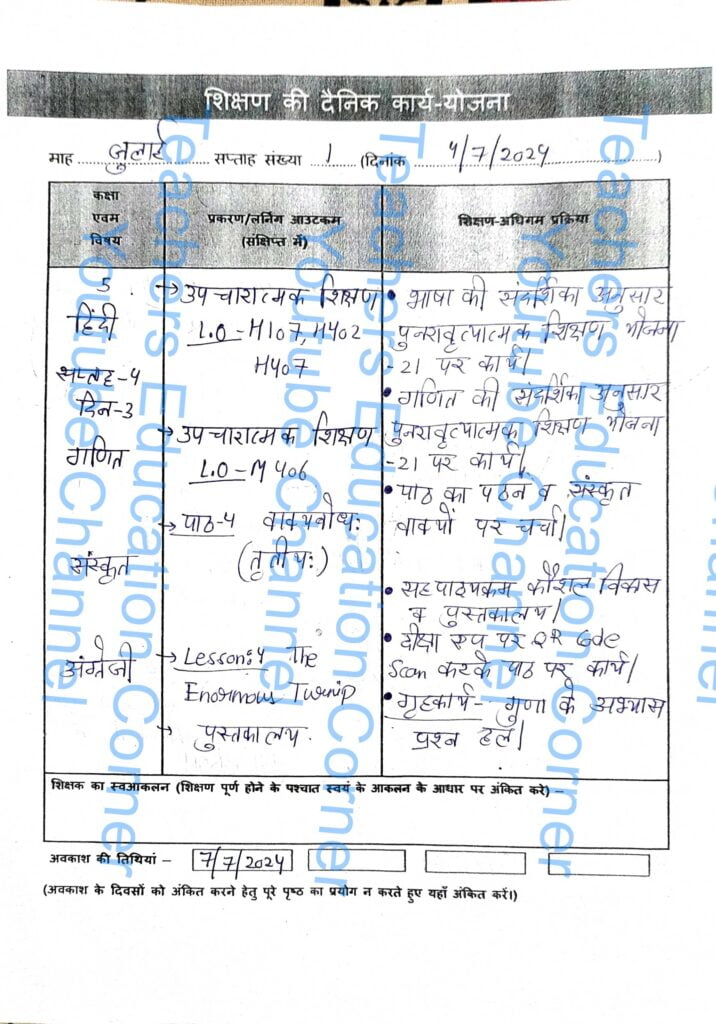 शिक्षण की दैनिक कार्य-योजना
माह जुलाई सप्ताह संख्या 1 (दिनांक 4/7/2024)
कक्षा
एवम
विषय
प्रकरण/लर्निंग आउटकम
(संक्षिप्त में)
शिक्षण-अधिगम प्रक्रिया
5
हिंदी
सप्ताह-4
दिन-3
गणित
संस्कृत
अंग्रेजी
→ उपचारात्मक शिक्षण
L.O - H107, H402
H407
→ उपचारात्मक शिक्षण
L.O - M406
→ पाठ-4 वाक्यबोधः
(तृतीयः)
→ Lesson:4 The
Enormous Turnip
→ पुस्तकालय
• भाषा की संदर्शिका अनुसार
पुनरावृत्यात्मक शिक्षण योजना
-21 पर कार्य।
• गणित की संदर्शिका अनुसार
पुनरावृत्यात्मक शिक्षण योजना
-21 पर कार्य।
• पाठ का पठन व संस्कृत
वाक्यों पर चर्चा।
• सहपाठ्यक्रम कौशल विकास
व पुस्तकालय।
• दीक्षा एप पर QR Code
Scan करके पाठ पर कार्य।
• गृहकार्य - गुणा के अभ्यास
प्रश्न हल।
शिक्षक का स्वआकलन (शिक्षण पूर्ण होने के पश्चात स्वयं के आकलन के आधार पर अंकित करे) –
अवकाश की तिथियां – 7/7/2024
(अवकाश के दिवसों को अंकित करने हेतु पूरे पृष्ठ का प्रयोग न करते हुए यहाँ अंकित करें।)
Teachers Education Corner
Youtube Channel
Teachers Education Corner
Youtube Channel
Teachers Education Corner
Youtube Channel